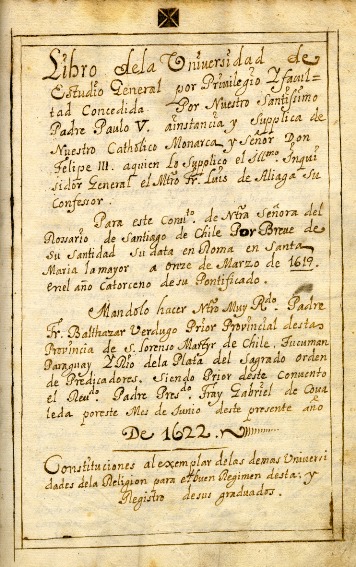 Libro dela Universidad de
Estudio General por Privilegio Y facul=
tad Concedida Por Nuestro Santissimo
Padre Paulo V. ainstancia y Supplica de
Nuestro Catholico Monarca y Señor Don
Felipe III. aquien lo Suplico el Illmo. Inqui
sidor General el Mtro. Fr. Luis de Aliaga Su
Confessor.
Para este Convto. de Ntra Señora del
Rosario de Santiago de Chile Por Breve de
Su Santidad Su data en Roma en Santa
Maria lamayor a onze de Marzo de 1619.
enel año Catorceno de su Pontificado.
Mandolo hacer Ntro Muy Rdo. Padre
Fr. Balthazar Verdugo Prior Provincial desta
Provincia de S. Lorenso Martyr de Chile, Tucuman
Paraguay Y Rio dela Plata del Sagrado orden
de Predicadores. Siendo Prior deste Convento
el Revdo. Padre Presdo. Fray Gabriel de Cova
leda poreste Mes de Iunio deste presente año
De 1622.
Constituciones al exemplar delas demas Universi
dades dela Religion para el buen Regimen desta: y
Registro desus graduados.